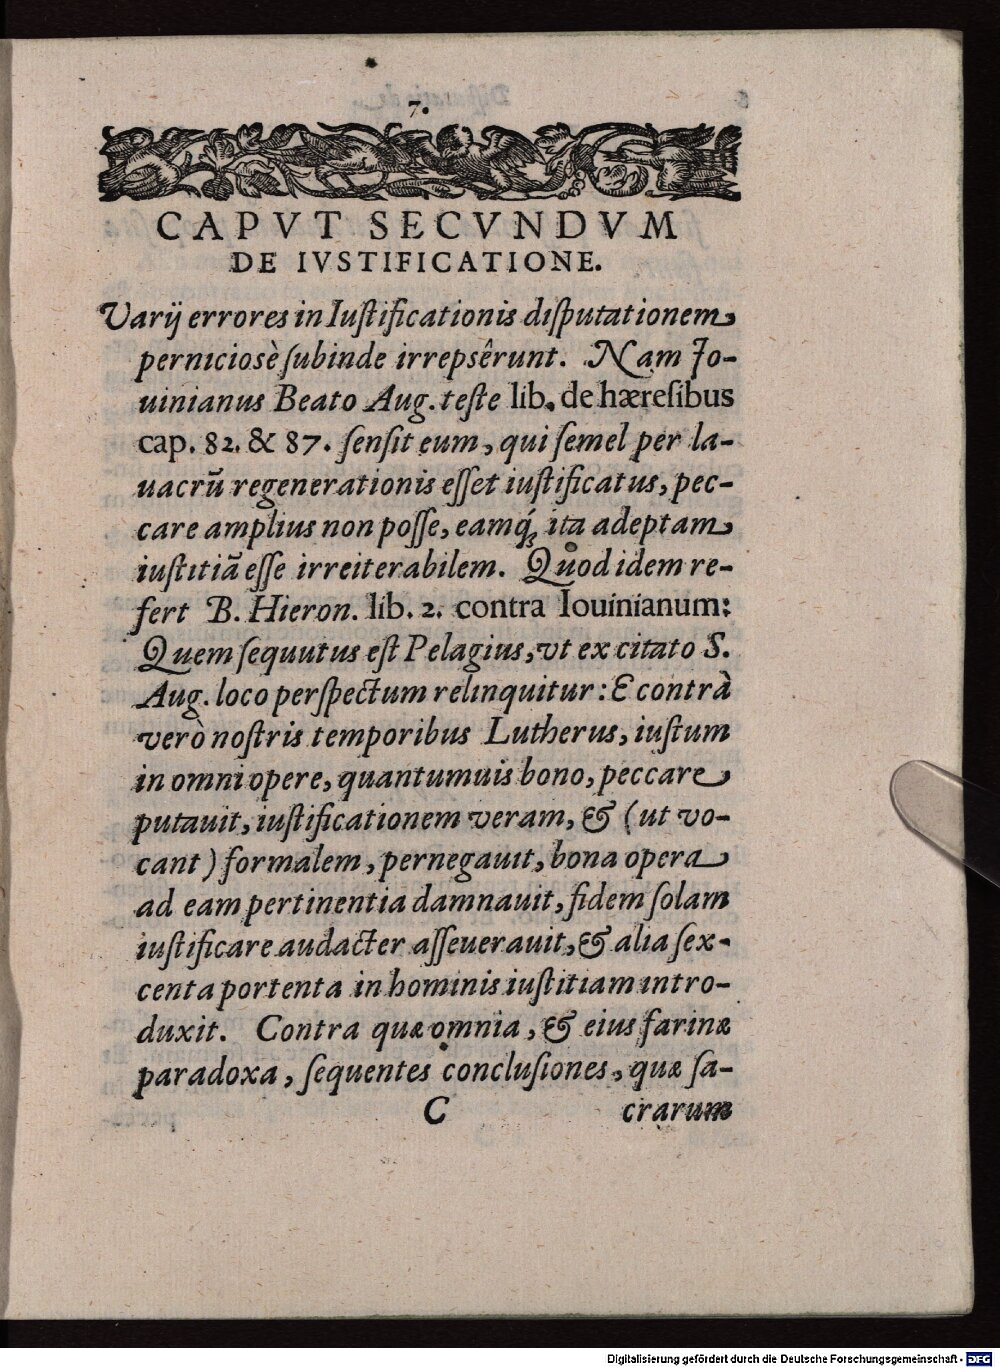 7.
CAPVT SECVNDVM
DE IVSTIFICATIONE.
Varij errores in Iuſtificationis diſputationem
perniciosè ſubinde irrepsêrunt. Nam Jo-
uinianus Beato Aug. teſte lib. de hæreſibus
cap. 82. & 87. ſenſit eum, qui ſemel per la-
uacrū regenerationis eſſet iuſtificatus, pec-
care amplius non poſſe, eamq́; ita adeptam
iuſtitiā eſſe irreiterabilem. Quod idem re-
fert B. Hieron. lib. 2. contra Iouinianum:
Quem ſequutus eſt Pelagius, vt ex citato S.
Aug. loco perſpectum relinquitur: E contrà
verò noſtris temporibus Lutherus, iuſtum
in omni opere, quantumuis bono, peccare
putauit, iuſtificationem veram, & (ut vo-
cant) formalem, pernegauit, bona opera
ad eam pertinentia damnauit, fidem ſolam
iuſtificare audacter aſſeuerauit, & alia ſex-
centa portenta in hominis iuſtitiam intro-
duxit. Contra quæ omnia, & eius farinæ
paradoxa, ſequentes concluſiones, quæ ſa-
C crarum
Digitalisierung gefördert durch die Deutsche Forschungsgemeinschaft - DFG